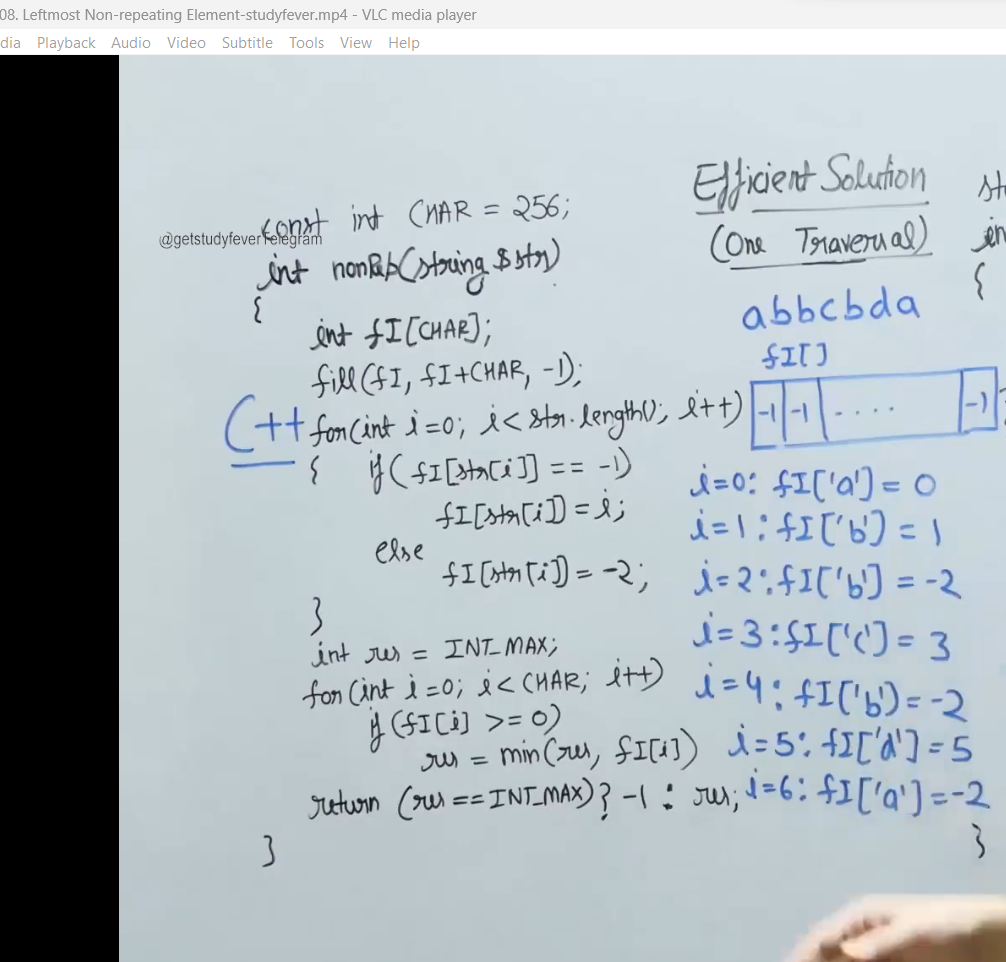 08. Leftmost Non-repeating Element-studyfever.mp4 - VLC media player
dia Playback Audio Video Subtitle Tools View Help
const int CHAR = 256;
@getstudyfeverTelegram
int nonRep(string $ str)
{
int fI[CHAR];
fill(fI, fI+CHAR, -1);
C++
for(int i=0; i< str.length(); i++)
{ if( fI[str[i]] == -1)
fI[str[i]] = i;
else
fI[str[i]] = -2;
}
int res = INT_MAX;
for(int i=0; i< CHAR; i++)
if(fI[i] >= 0)
res = min(res, fI[i])
return (res == INT_MAX)? -1 : res;
}
Efficient Solution
(One Traversal)
abbcbda
fI[]
-1 -1 .... -1
i=0: fI['a'] = 0
i=1: fI['b'] = 1
i=2: fI['b'] = -2
i=3: fI['c'] = 3
i=4: fI['b'] = -2
i=5: fI['d'] = 5
i=6: fI['a'] = -2
{
}